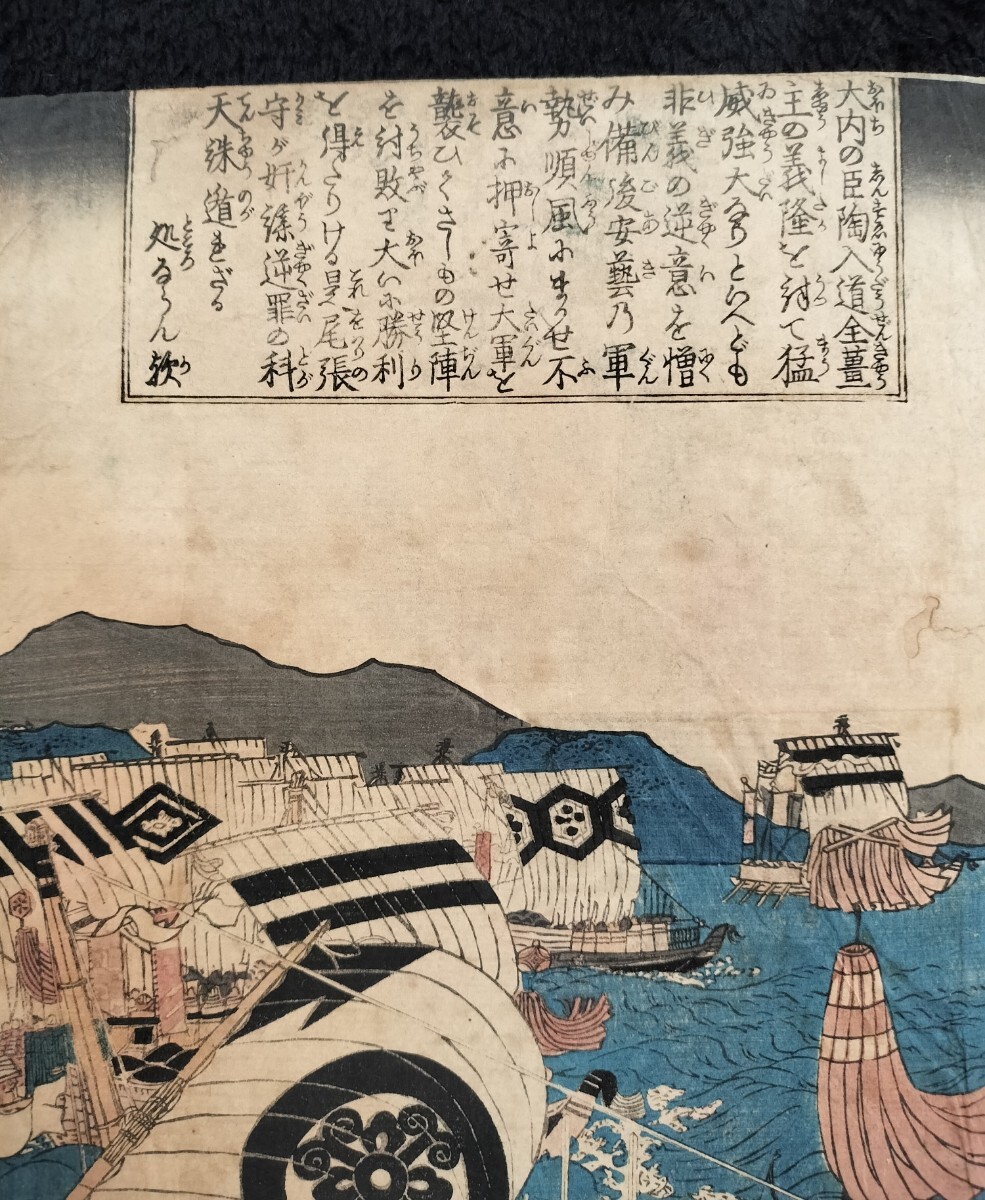 大内の臣陶入道全薑
主の義隆を討て猛
威強大なりといへども
非義の逆意を憎
み備後安藝乃軍
勢順風にまかせ不
意に押寄せ大軍を
襲ひくさしもの堅陣
を討敗り大いに勝利
を得たりける是尾張
守が奸謀逆罪の科
天誅遁れざる
処ならん歟